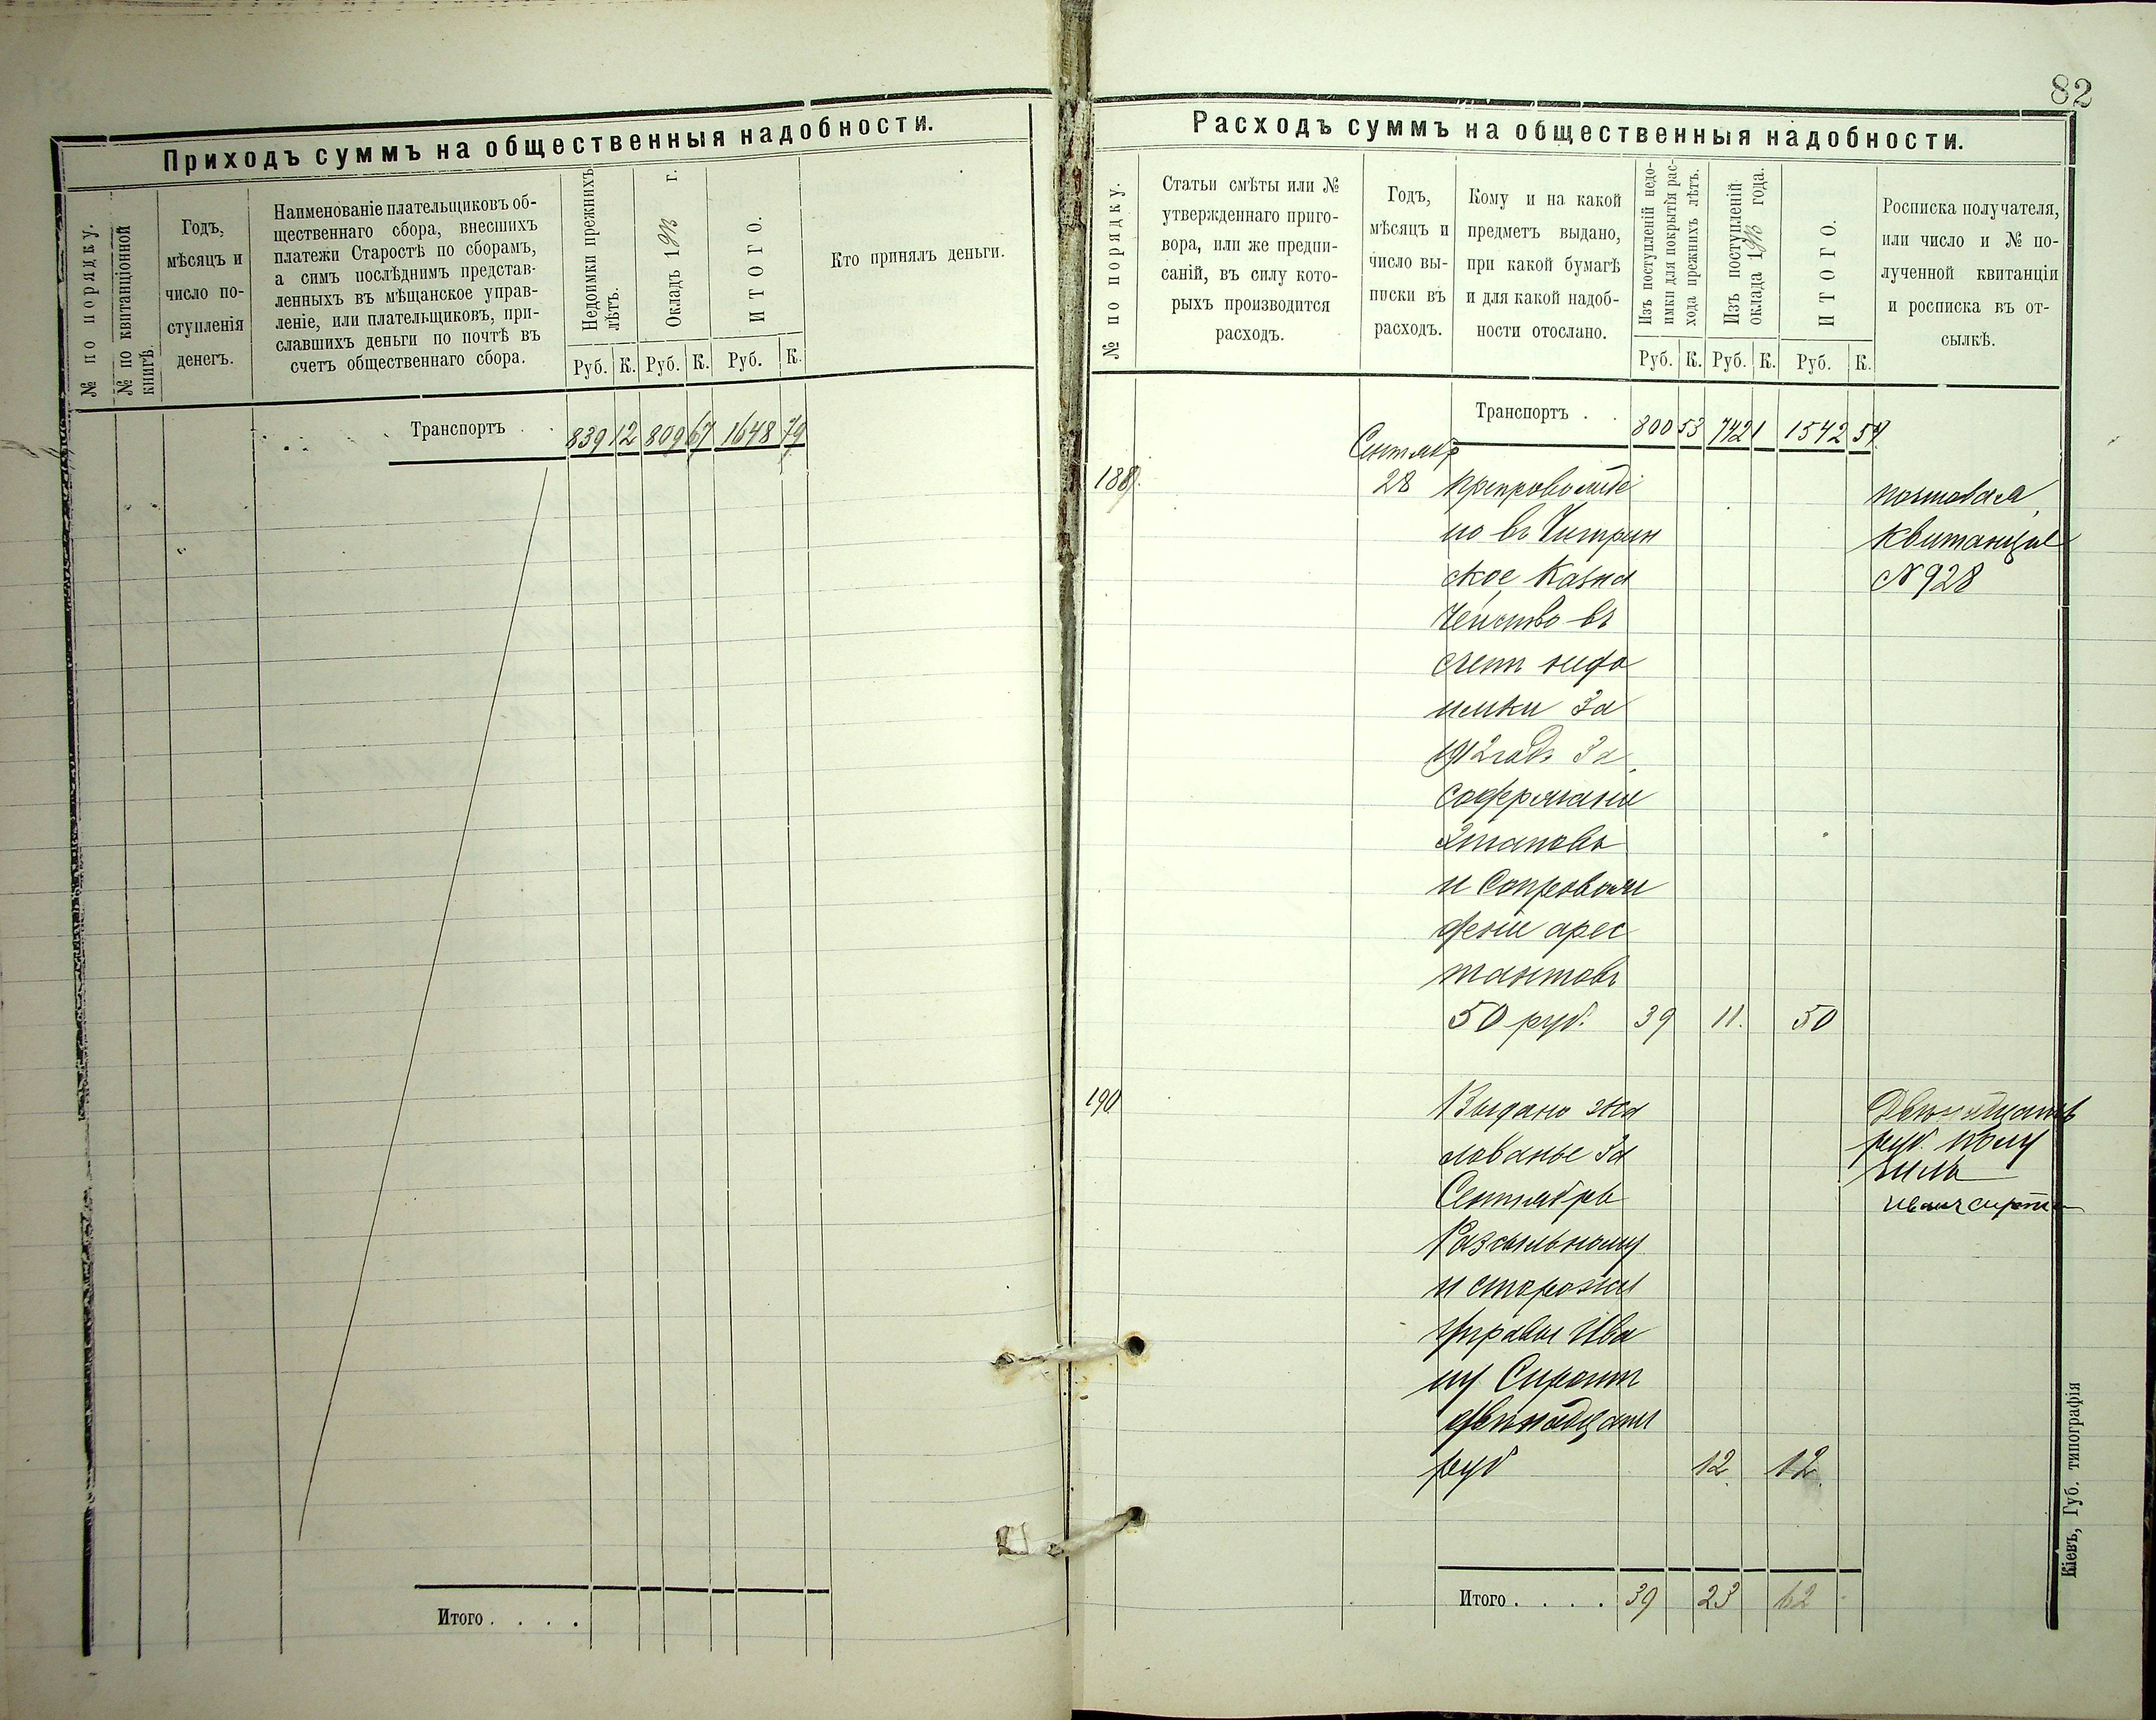 82
Приходъ суммъ на общественныя надобности.
№ по порядку.
№ по квитанціонной
книгѣ.
Годъ,
мѣсяцъ и
число по-
ступленія
денегъ.
Наименованіе плательщиковъ об-
щественнаго сбора, внесшихъ
платежи Старостѣ по сборамъ,
а симъ послѣднимъ представ-
ленныхъ въ мѣщанское управ-
леніе, или плательщиковъ, при-
славшихъ деньги по почтѣ въ
счетъ общественнаго сбора.
Недоимки прежнихъ
лѣтъ.
Окладъ 1913 г.
ИТОГО.
Руб. К. Руб. К. Руб. К.
Кто принялъ деньги.
Транспортъ . . 839 12 809 67 1648 79
Итого . . . .
Расходъ суммъ на общественныя надобности.
№ по порядку.
Статьи смѣты или №
утвержденнаго приго-
вора, или же предпи-
саній, въ силу кото-
рыхъ производится
расходъ.
Годъ,
мѣсяцъ и
число вы-
писки въ
расходъ.
Кому и на какой
предметъ выдано,
при какой бумагѣ
и для какой надоб-
ности отослано.
Изъ поступленій недо-
имки для покрытія рас-
хода прежнихъ лѣтъ.
Изъ поступленій
оклада 1913 года.
ИТОГО.
Руб. К. Руб. К. Руб. К.
Росписка получателя,
или число и № по-
лученной квитанціи
и росписка въ от-
сылкѣ.
Транспортъ . . 800 53 742 1 1542 54
Сентябр
189. 28 препровожде
но въ Чигрин
ское Казна
чейство въ
счет недо
имки За
1912 годъ За
содержание
Этаповъ
и Сопровож
дение арес
тантовъ
50 руб. 39 11. 50
почтовая
квитанция
№ 928
190 Выдано жа
лованье За
Сентябрь
Разсыльному
и сторожу
Управы Ива
ну Сирот
двенадцать
руб 12 12
Двенадцать
руб. полу
чилъ
Иван Сирота
Итого . . . . 39 23 62
Кіевъ, Губ. типографія